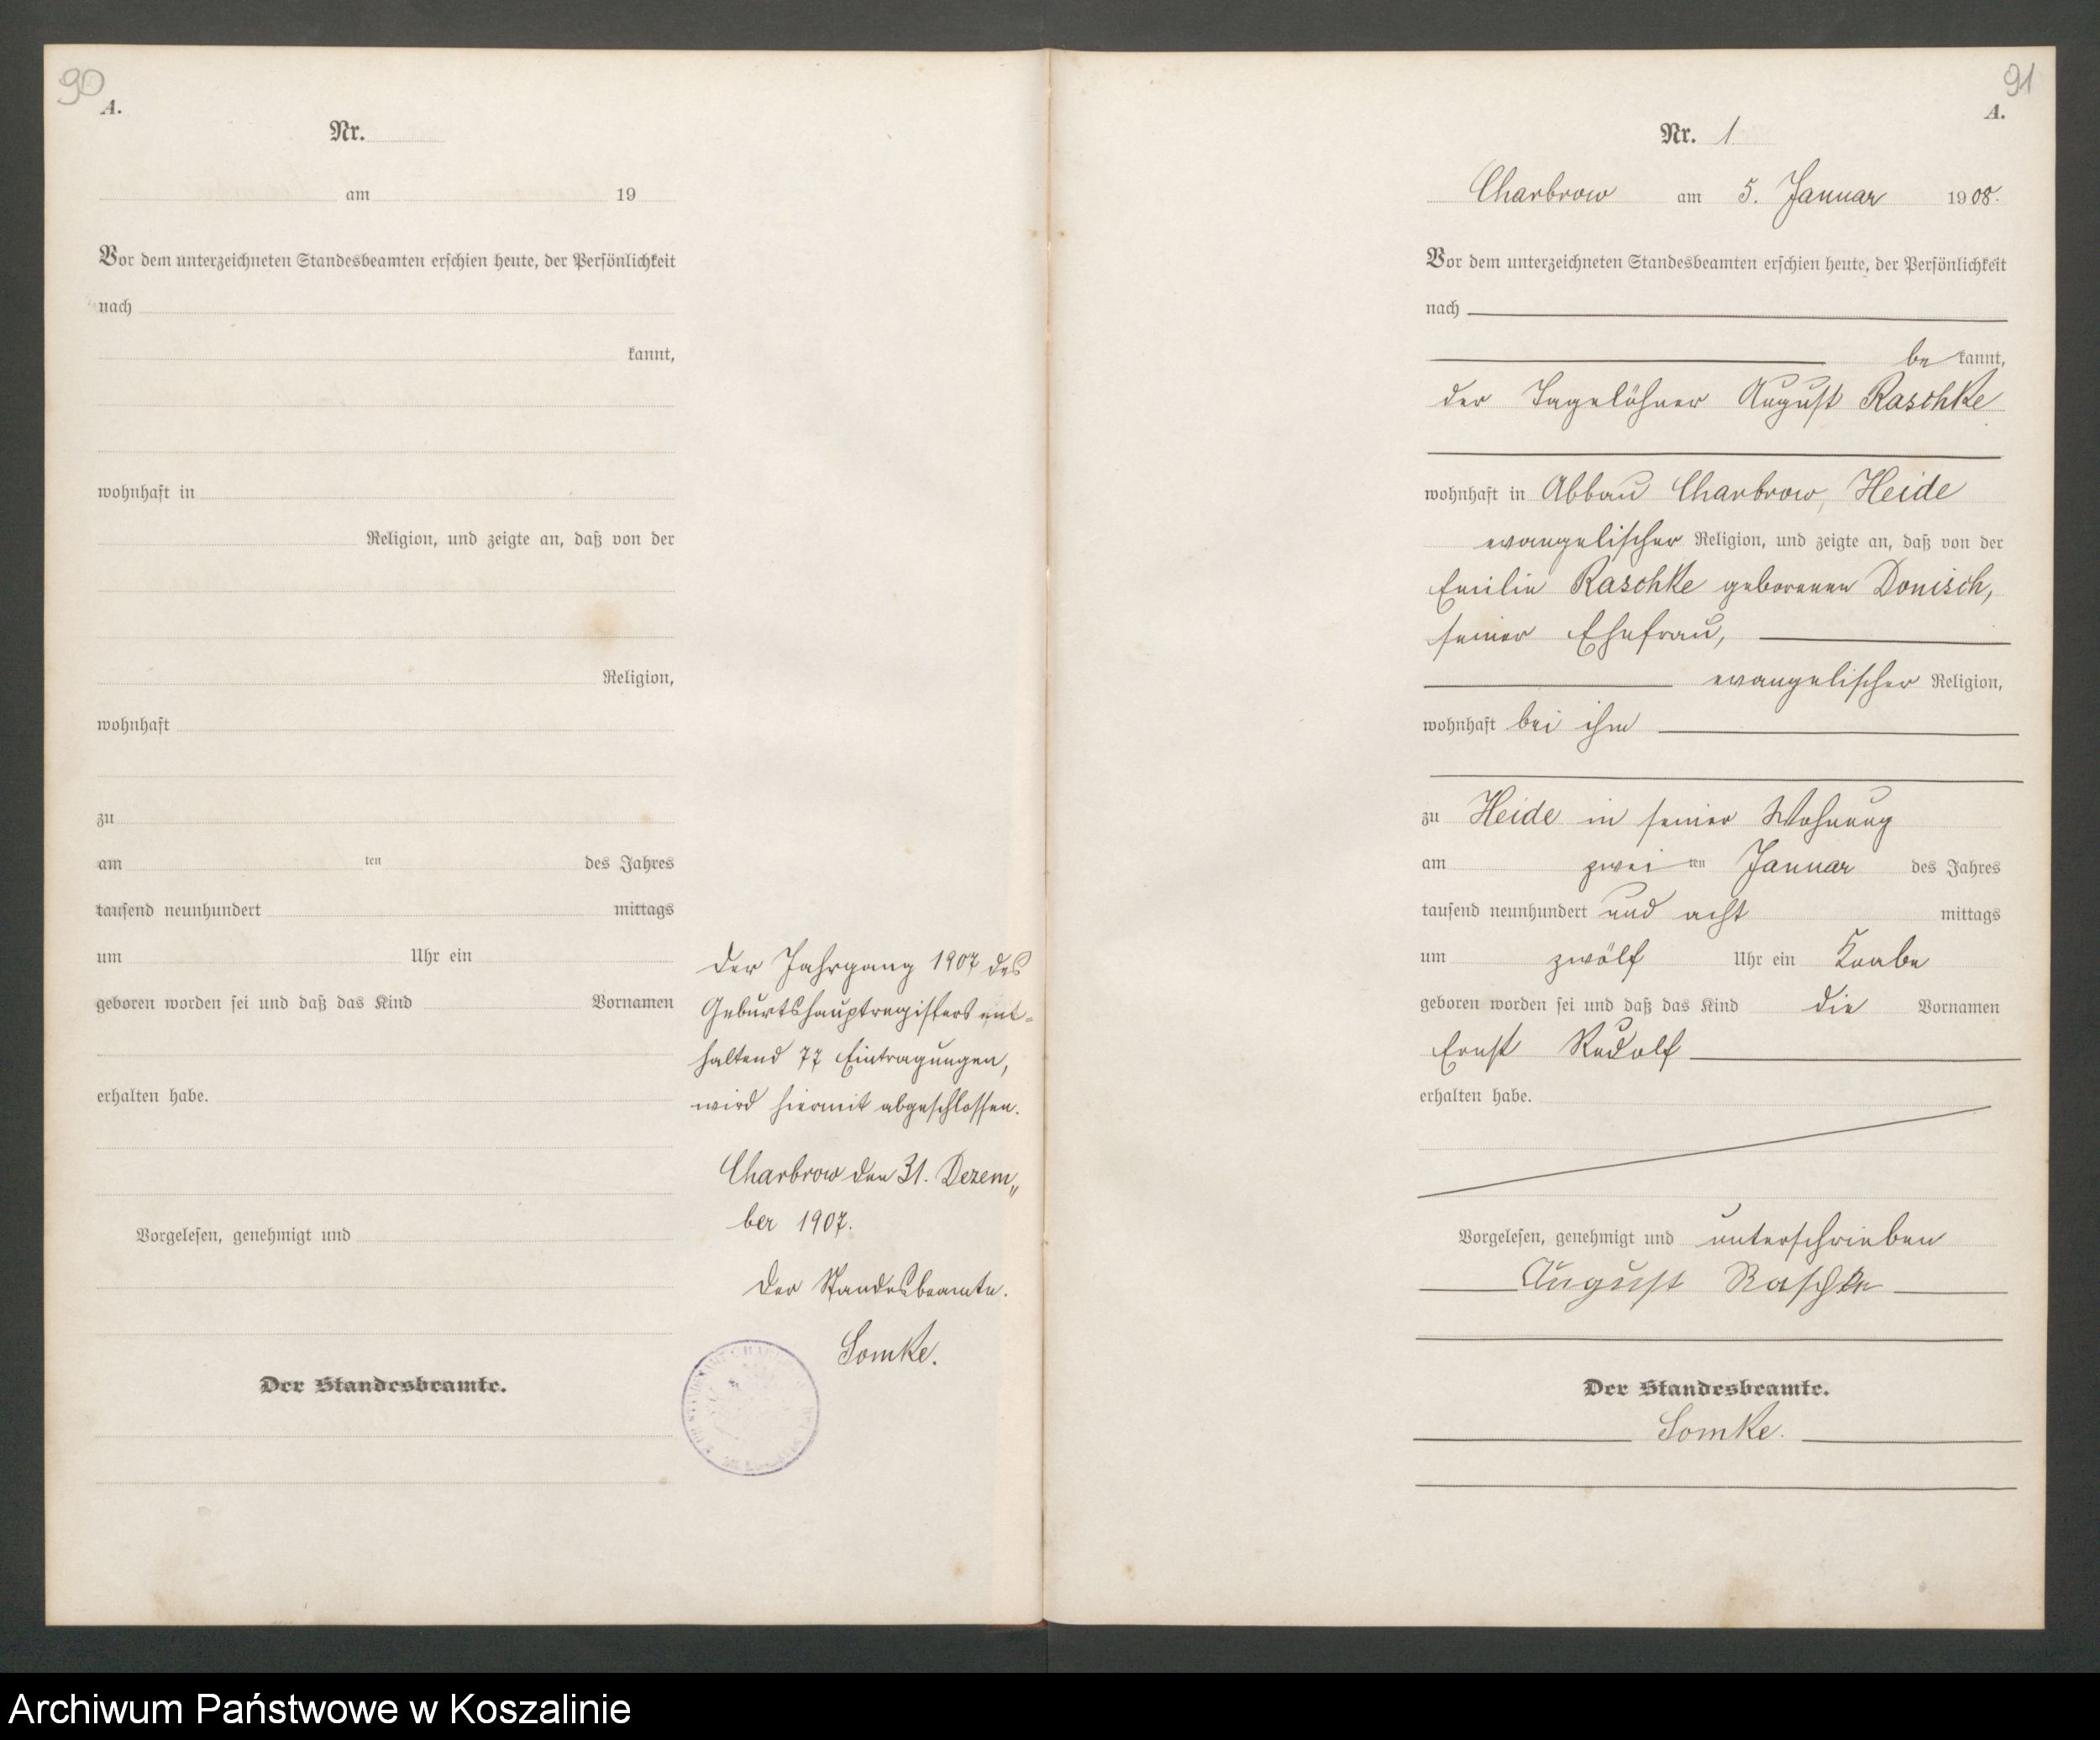 90
A.
Nr.
am 19
Vor dem unterzeichneten Standesbeamten erschien heute, der Persönlichkeit
nach
kannt,
wohnhaft in
Religion, und zeigte an, daß von der
Religion,
wohnhaft
zu
am ten des Jahres
tausend neunhundert mittags
um Uhr ein
geboren worden sei und daß das Kind Vornamen
erhalten habe.
Vorgelesen, genehmigt und
Der Standesbeamte.
Der Jahrgang 1907 des
Geburtshauptregisters ent-
haltend 77 Eintragungen,
wird hiermit abgeschlossen.
Charbrow den 31. Dezem„
ber 1907.
Der Standesbeamte.
Somke.
91
A.
Nr. 1
Charbrow am 5. Januar 1908.
Vor dem unterzeichneten Standesbeamten erschien heute, der Persönlichkeit
nach
be kannt,
der Tagelöhner August Raschke
wohnhaft in Abbau Charbrow, Heide
evangelischer Religion, und zeigte an, daß von der
Emilie Raschke geborenen Donisch,
seiner Ehefrau,
evangelischer Religion,
wohnhaft bei ihm
zu Heide in seiner Wohnung
am zwei ten Januar des Jahres
tausend neunhundert und acht mittags
um zwölf Uhr ein Knabe
geboren worden sei und daß das Kind die Vornamen
Ernst Rudolf
erhalten habe.
Vorgelesen, genehmigt und unterschrieben
August Raschke
Der Standesbeamte.
Somke.
Archiwum Państwowe w Koszalinie